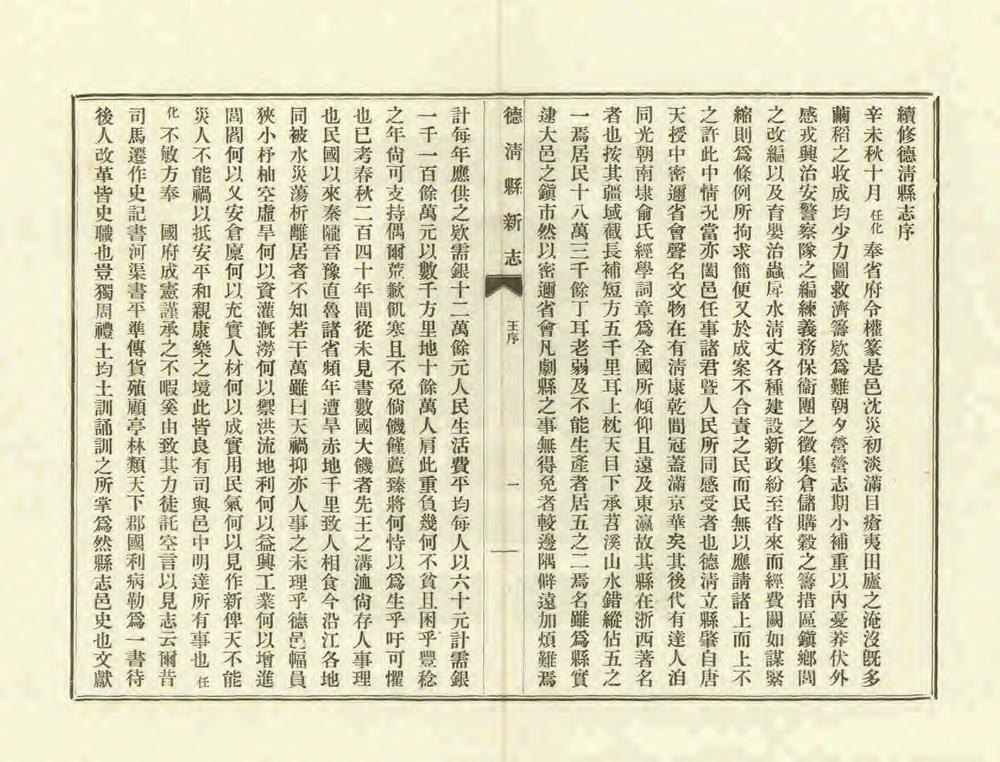 續修德淸縣志序
辛未秋十月任化奉省府令權篆是邑沈災初淡滿目瘡夷田廬之淹沒旣多
繭稻之收成均少力圖救濟籌欵爲難朝夕營營志期小補重以內憂莽伏外
感戎興治安警察隊之編練義務保衞團之徵集倉儲購穀之籌措區鎭鄕閭
之改編以及育嬰治蟲戽水淸丈各種建設新政紛至沓來而經費闕如謀緊
縮則爲條例所拘求簡便又於成案不合責之民而民無以應請諸上而上不
之許此中情況當亦闔邑任事諸君暨人民所同感受者也德淸立縣肇自唐
天授中密邇省會聲名文物在有淸康乾間冠蓋滿京華矣其後代有達人洎
同光朝南埭俞氏經學詞章爲全國所傾仰且遠及東瀛故其縣在浙西著名
者也按其疆域截長補短方五千里耳上枕天目下承苕溪山水錯縱佔五之
一焉居民十八萬三千餘丁耳老弱及不能生產者居五之二焉名雖爲縣實
逮大邑之鎭市然以密邇省會凡劇縣之事無得免者較邊隅僻遠加煩難焉
德淸縣新志
王序
一
計每年應供之欵需銀十二萬餘元人民生活費平均每人以六十元計需銀
一千一百餘萬元以數千方里地十餘萬人肩此重負幾何不貧且困乎豐稔
之年尙可支持偶爾荒歉飢寒且不免倘饑饉薦臻將何恃以爲生乎吁可懼
也已考春秋二百四十年間從未見書數國大饑者先王之溝洫尙存人事理
也民國以來秦隴晉豫直魯諸省頻年遭旱赤地千里致人相食今沿江各地
同被水災蕩析離居者不知若干萬雖曰天禍抑亦人事之未理乎德邑幅員
狹小杼柚空虛旱何以資灌漑澇何以禦洪流地利何以益興工業何以增進
閭閻何以乂安倉廩何以充實人材何以成實用民氣何以見作新俾天不能
災人不能禍以抵安平和親康樂之境此皆良有司與邑中明達所有事也任
化不敏方奉 國府成憲謹承之不暇奚由致其力徒託空言以見志云爾昔
司馬遷作史記書河渠書平準傳貨殖顧亭林類天下郡國利病勒爲一書待
後人改革皆史職也豈獨周禮土均土訓誦訓之所掌爲然縣志邑史也文獻